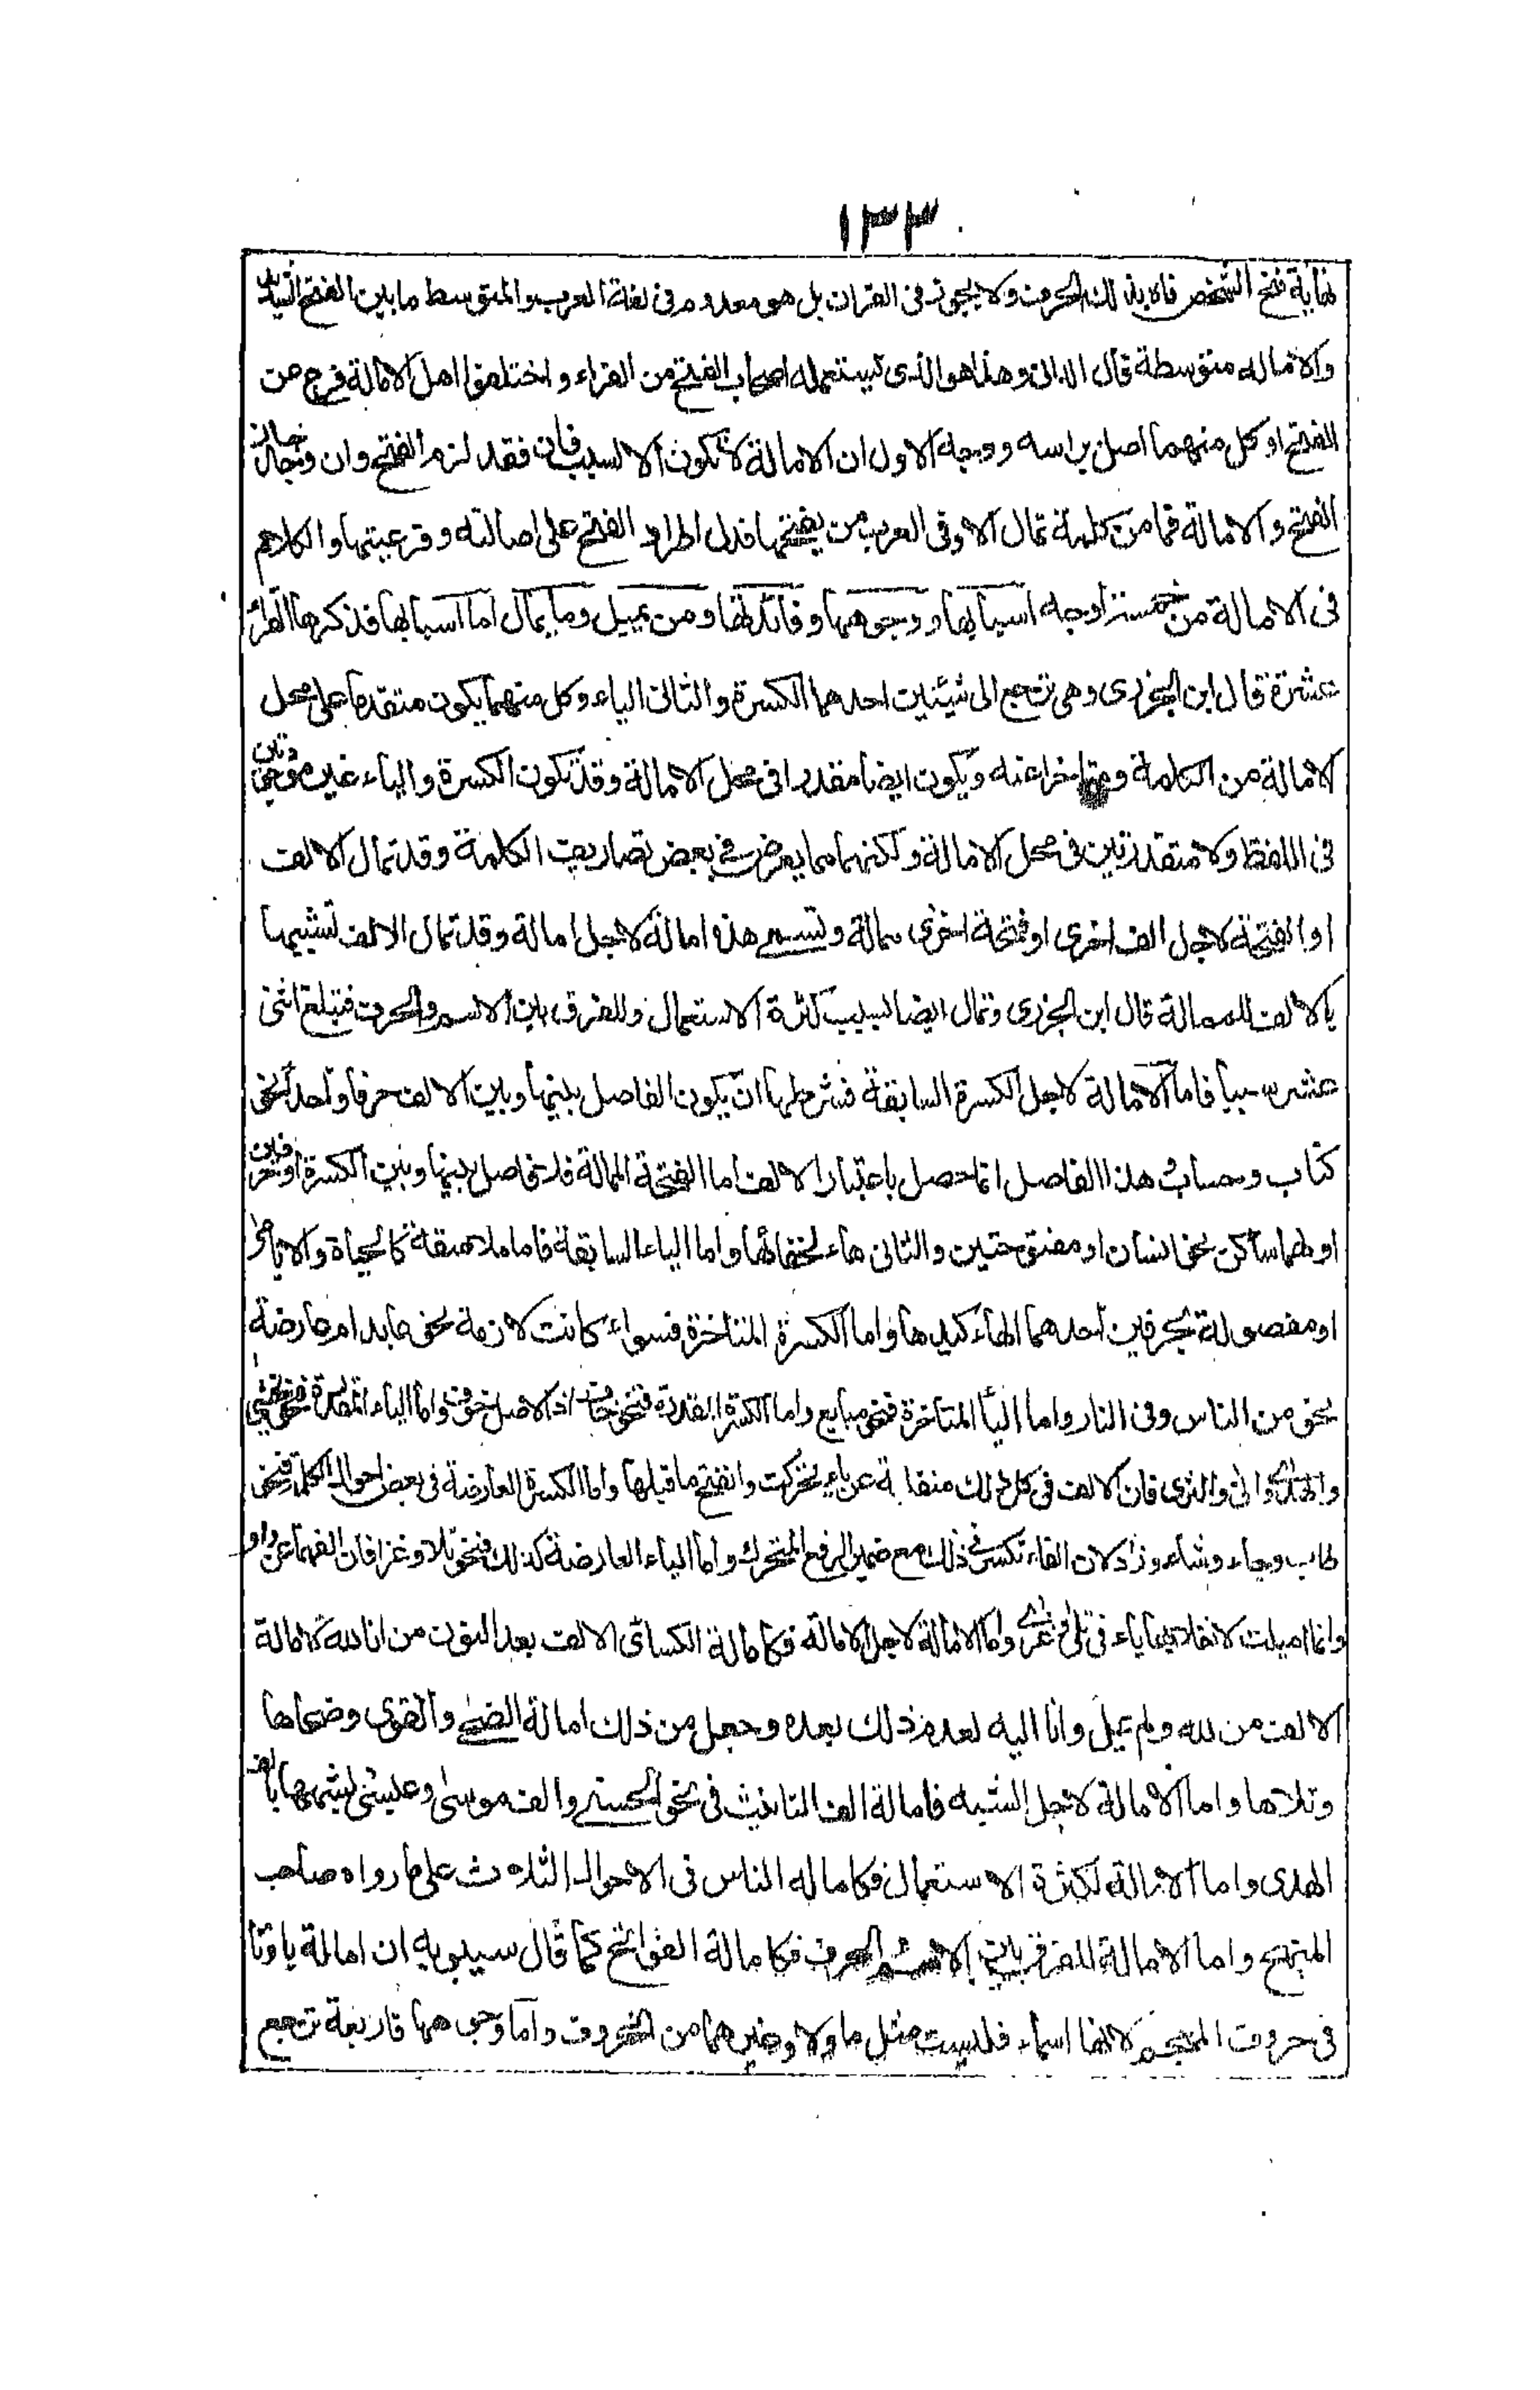 ١٣٣
نهاية فتح الشخص فاه بذلك الحرف ولا يجوز فى القران بل هو معدوم فى لغة العرب والمتوسط ما بين الفتح الشديد
والامالة متوسطة قال الدانى وهذا هو الذى يستعمله اصحاب الفتح من القراء واختلفوا هل الامالة فرع من
الفتح او كل منهما اصل براسه ووجه الاول ان الامالة لا تكون الا لسبب فان فقد لزم الفتح وان وجد جاز
الفتح والامالة فما من كلمة تمال الا وفى العرب من يفتحها فدل اطراد الفتح على اصالته وفرعيتها والكلام
فى الامالة من خمسة اوجه اسبابها ووجوهها وفائدتها ومن يميل وما يمال اما اسبابها فذكرها القراء
عشرة قال ابن الجزرى وهى ترجع الى شيئين احدهما الكسرة والثانى الياء وكل منهما يكون متقدما على محل
الامالة من الكلمة ومتاخرا عنه ويكون ايضا مقدرا فى محل الامالة وقد تكون الكسرة والياء غير موجودتين
فى اللفظ ولا مقدرتين فى محل الامالة ولكنهما مما يعرض فى بعض تصاريف الكلمة وقد تمال الالف
او الفتحة لاجل الف اخرى او فتحة اخرى ممالة وتسمى هذه امالة لاجل امالة وقد تمال الالف تشبيها
بالالف الممالة قال ابن الجزرى وتمال ايضا لسبب كثرة الاستعمال وللفرق بين الاسم والحرف فتبلغ اثنى
عشر سببا فاما الامالة لاجل الكسرة السابقة فشرطها ان يكون الفاصل بينها وبين الالف حرفا واحدا نحو
كتاب وحساب هذا الفاصل انما حصل باعتبار الالف اما الفتحة الممالة فلا فاصل بينها وبين الكسرة او حرفين
اولهما ساكن نحو انسان او مفتوحتين والثانى هاء لخفائها واما الياء السابقة فاما ملاصقة كالحياة والايامى
او مفصولة بحرفين احدهما الهاء كيدها واما الكسرة المتاخرة فسواء كانت لازمة نحو عابد ام عارضة
نحو من الناس وفى النار واما الياء المتاخرة فنحو مبايع واما الكسرة المقدرة فنحو خاف اذ الاصل خوف واما الياء المقدرة فنحو يخشى
والهدى وابى والثرى فان الالف فى كل ذلك منقلبة عن ياء تحركت وانفتح ما قبلها واما الكسرة العارضة فى بعض احوال الكلمة فنحو
طاب وجاء وشاء وزاد لان الفاء تكسر فى ذلك مع ضمير الرفع المتحرك واما الياء العارضة كذلك فنحو تلا وغزا فان الفهما عن واو
وانما اميلت لانقلابها ياء فى تلى غزى واما الامالة لاجل الامالة فكامالة الكسائى الالف بعد النون من انا لله لامالة
الالف من لله ولم يمل وانا اليه لعدم ذلك بعده وجعل من ذلك امالة الضحى والقوى وضحاها
وتلاها واما الامالة لاجل الشبه فامالة الف التانيث فى نحو الحسنى والف موسى وعيسى لشبهها بالف
الهدى واما الامالة لكثرة الاستعمال فكامالة الناس فى الاحوال الثلاث على ما رواه صاحب
المبهج واما الامالة للفرق بين الاسم والحرف فكامالة الفواتح كما قال سيبويه ان امالة با وتا
فى حروف المعجم لانها اسماء فليست مثل ما ولا وغيرهما من الحروف واما وجوهها فاربعة ترجع